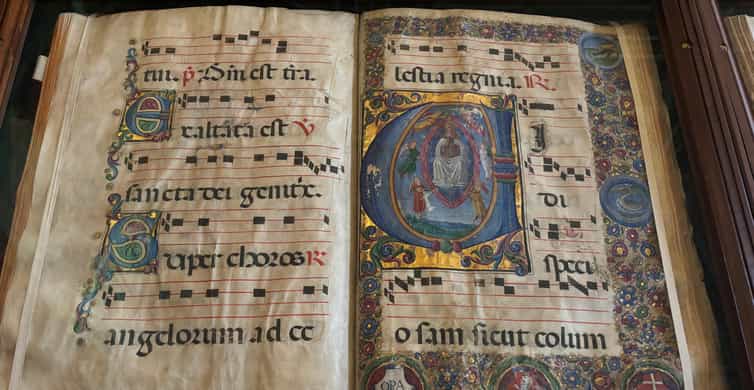 est
Exaltata est V
sancta dei genitix.
Super choros R
angelorum ad ce
lestia regna. R.
VI
di
speci
osam sicut colum
OPA